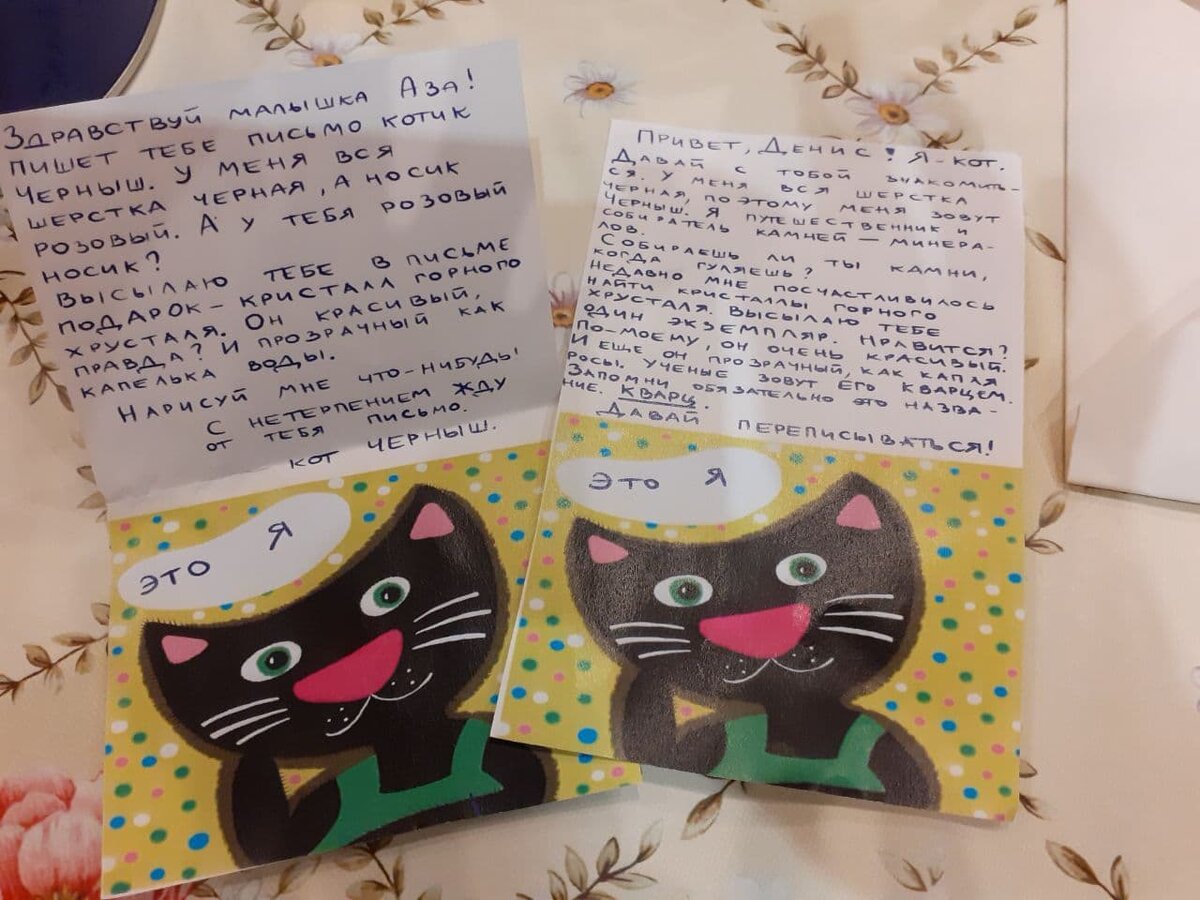 Здравствуй малышка Аза!
пишет тебе письмо котик
Черныш. У меня вся
шерстка черная, а носик
розовый. А у тебя розовый
носик?
Высылаю тебе в письме
подарок – кристалл горного
хрусталя. Он красивый,
правда? И прозрачный как
капелька воды.
Нарисуй мне что-нибудь!
С нетерпением жду
от тебя письмо.
кот Черныш.
это я
Привет, Денис! Я - кот.
Давай с тобой знакомить-
ся. У меня вся шерстка
черная, поэтому меня зовут
Черныш. Я путешественник и
собиратель камней — минера-
лов.
Собираешь ли ты камни,
когда гуляешь?
Недавно мне посчастливилось
найти кристаллы горного
хрусталя. Высылаю тебе
один экземпляр. Нравится?
По-моему, он очень красивый.
И еще он прозрачный, как капля
росы. Ученые зовут его кварцем.
Запомни обязательно это назва-
ние. Кварц.
Давай переписываться!
это я